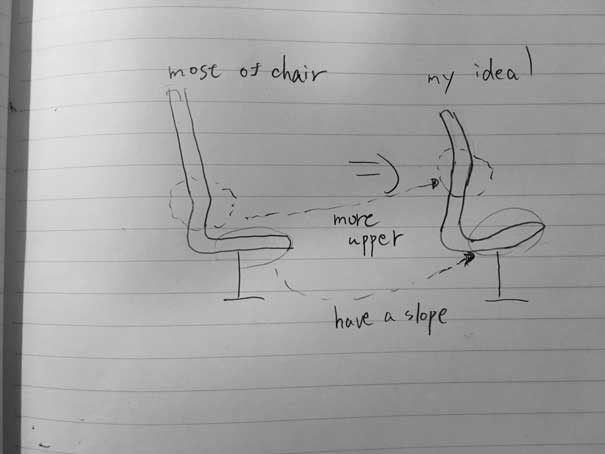 most of chair
my ideal
more
upper
have a slope